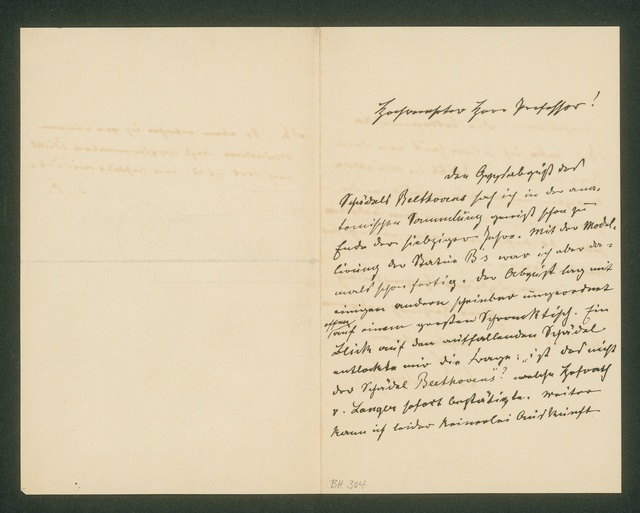 Hochverehrter Herr Professor!
Den Gypsabguß des
Schädels Beethovens sah ich in der ana-
tomischen Sammlung gewiß schon zu
Ende der siebziger Jahre. Mit der Model-
lirung der Statue B's war ich aber da-
mals schon fertig. Der Abguß lag mit
einigen andern scheinbar ungeordnet
offen auf einem großen Schranktisch. Ein
Blick auf den auffallenden Schädel
entlockte mir die Frage: „ist das nicht
der Schädel Beethovens"? welche Hofrath
v. Langer sofort bestätigte. Weiter
kann ich leider keinerlei Auskunft
BH 304